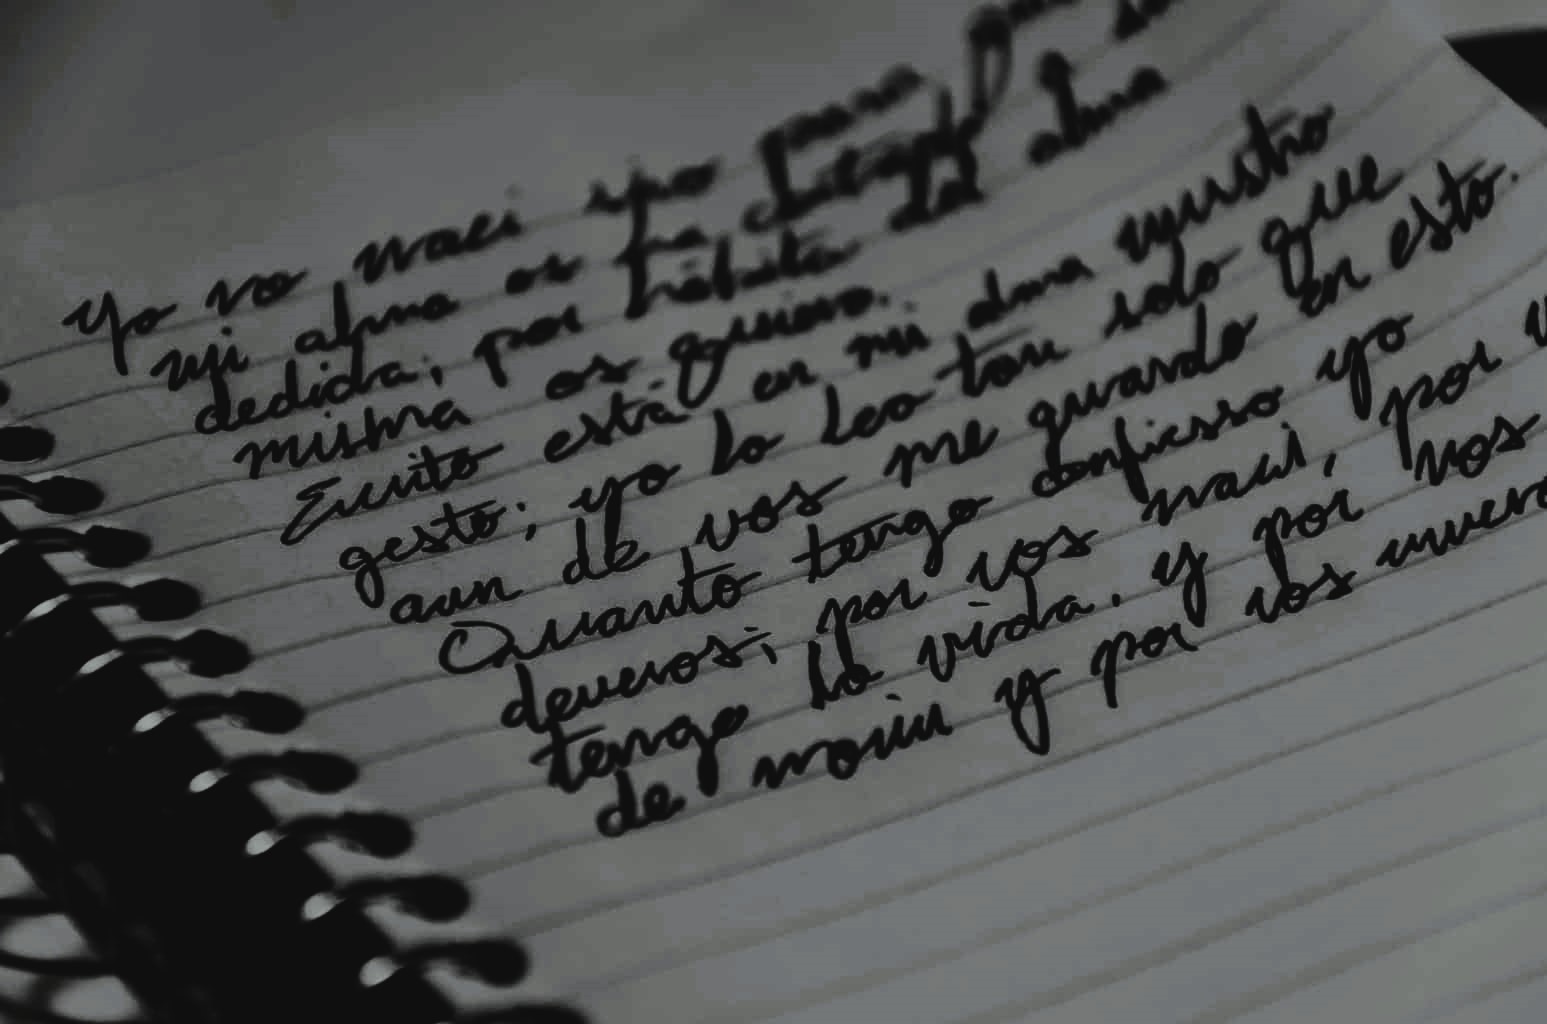 Yo no naci sino para
mi alma os ha
dedida; por hábito del alma
misma os quiero.
Escrito está en mi alma vuestro
gesto; yo lo leo tan solo que
aun de vos me guardo en esto.
Quanto tengo confiesso yo
deveros; por vos naci, por v
tengo la vida. y por vos
de morir y por vos muero